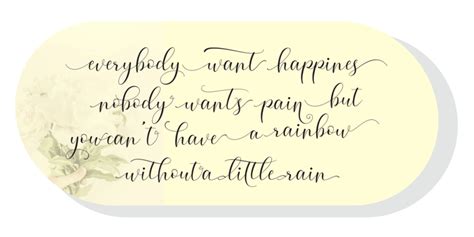 everybody want happines
nobody wants pain but
you can't have a rainbow
without a little rain